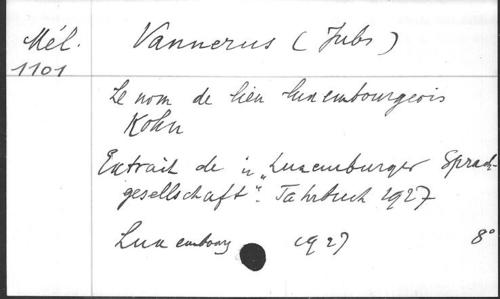 Mél. Vannerus (Jules)
1101
Le nom de lieu luxembourgeois
Kohn
Extrait de : "Luxemburger Sprach-
gesellschaft". Jahrbuch 1927
Luxembourg 1927 8°